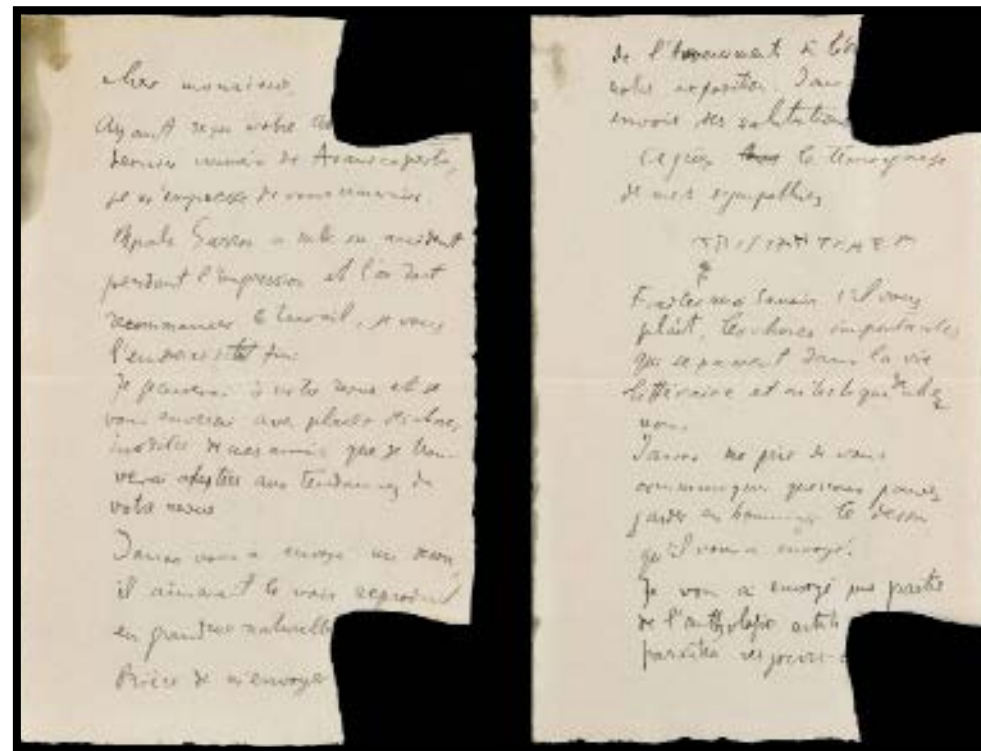 cher monsieur,
Ayant reçu votre
dernier numéro de Avanscoperta,
je m'empresse de vous
a subi un accident
pendant l'impression et l'on doit
recommencer le travail, je vous
l'enverrai
Je penserai à votre revue et je
vous enverrai avec plaisir des choses
inédites de mes amis que je trou-
verai adaptées aux tendances de
votre revue
Janco vous a envoyé un dessin,
il aimerait le voir reproduit
en grandeur naturelle
Prière de m'envoyer
de l'
votre exposition. Janco
envoie des salutations
le témoignage
de mes sympathies
TRISTAN TZARA
Faites moi savoir s'il vous
plaît, les choses importantes
qui se passent dans la vie
littéraire et artistique de chez
vous.
Janco me prie de vous
communiquer que vous pouvez
garder en hommage le dessin
qu'il vous a envoyé.
Je vous ai envoyé une partie
de l'anthologie
paraîtra ces jours-ci